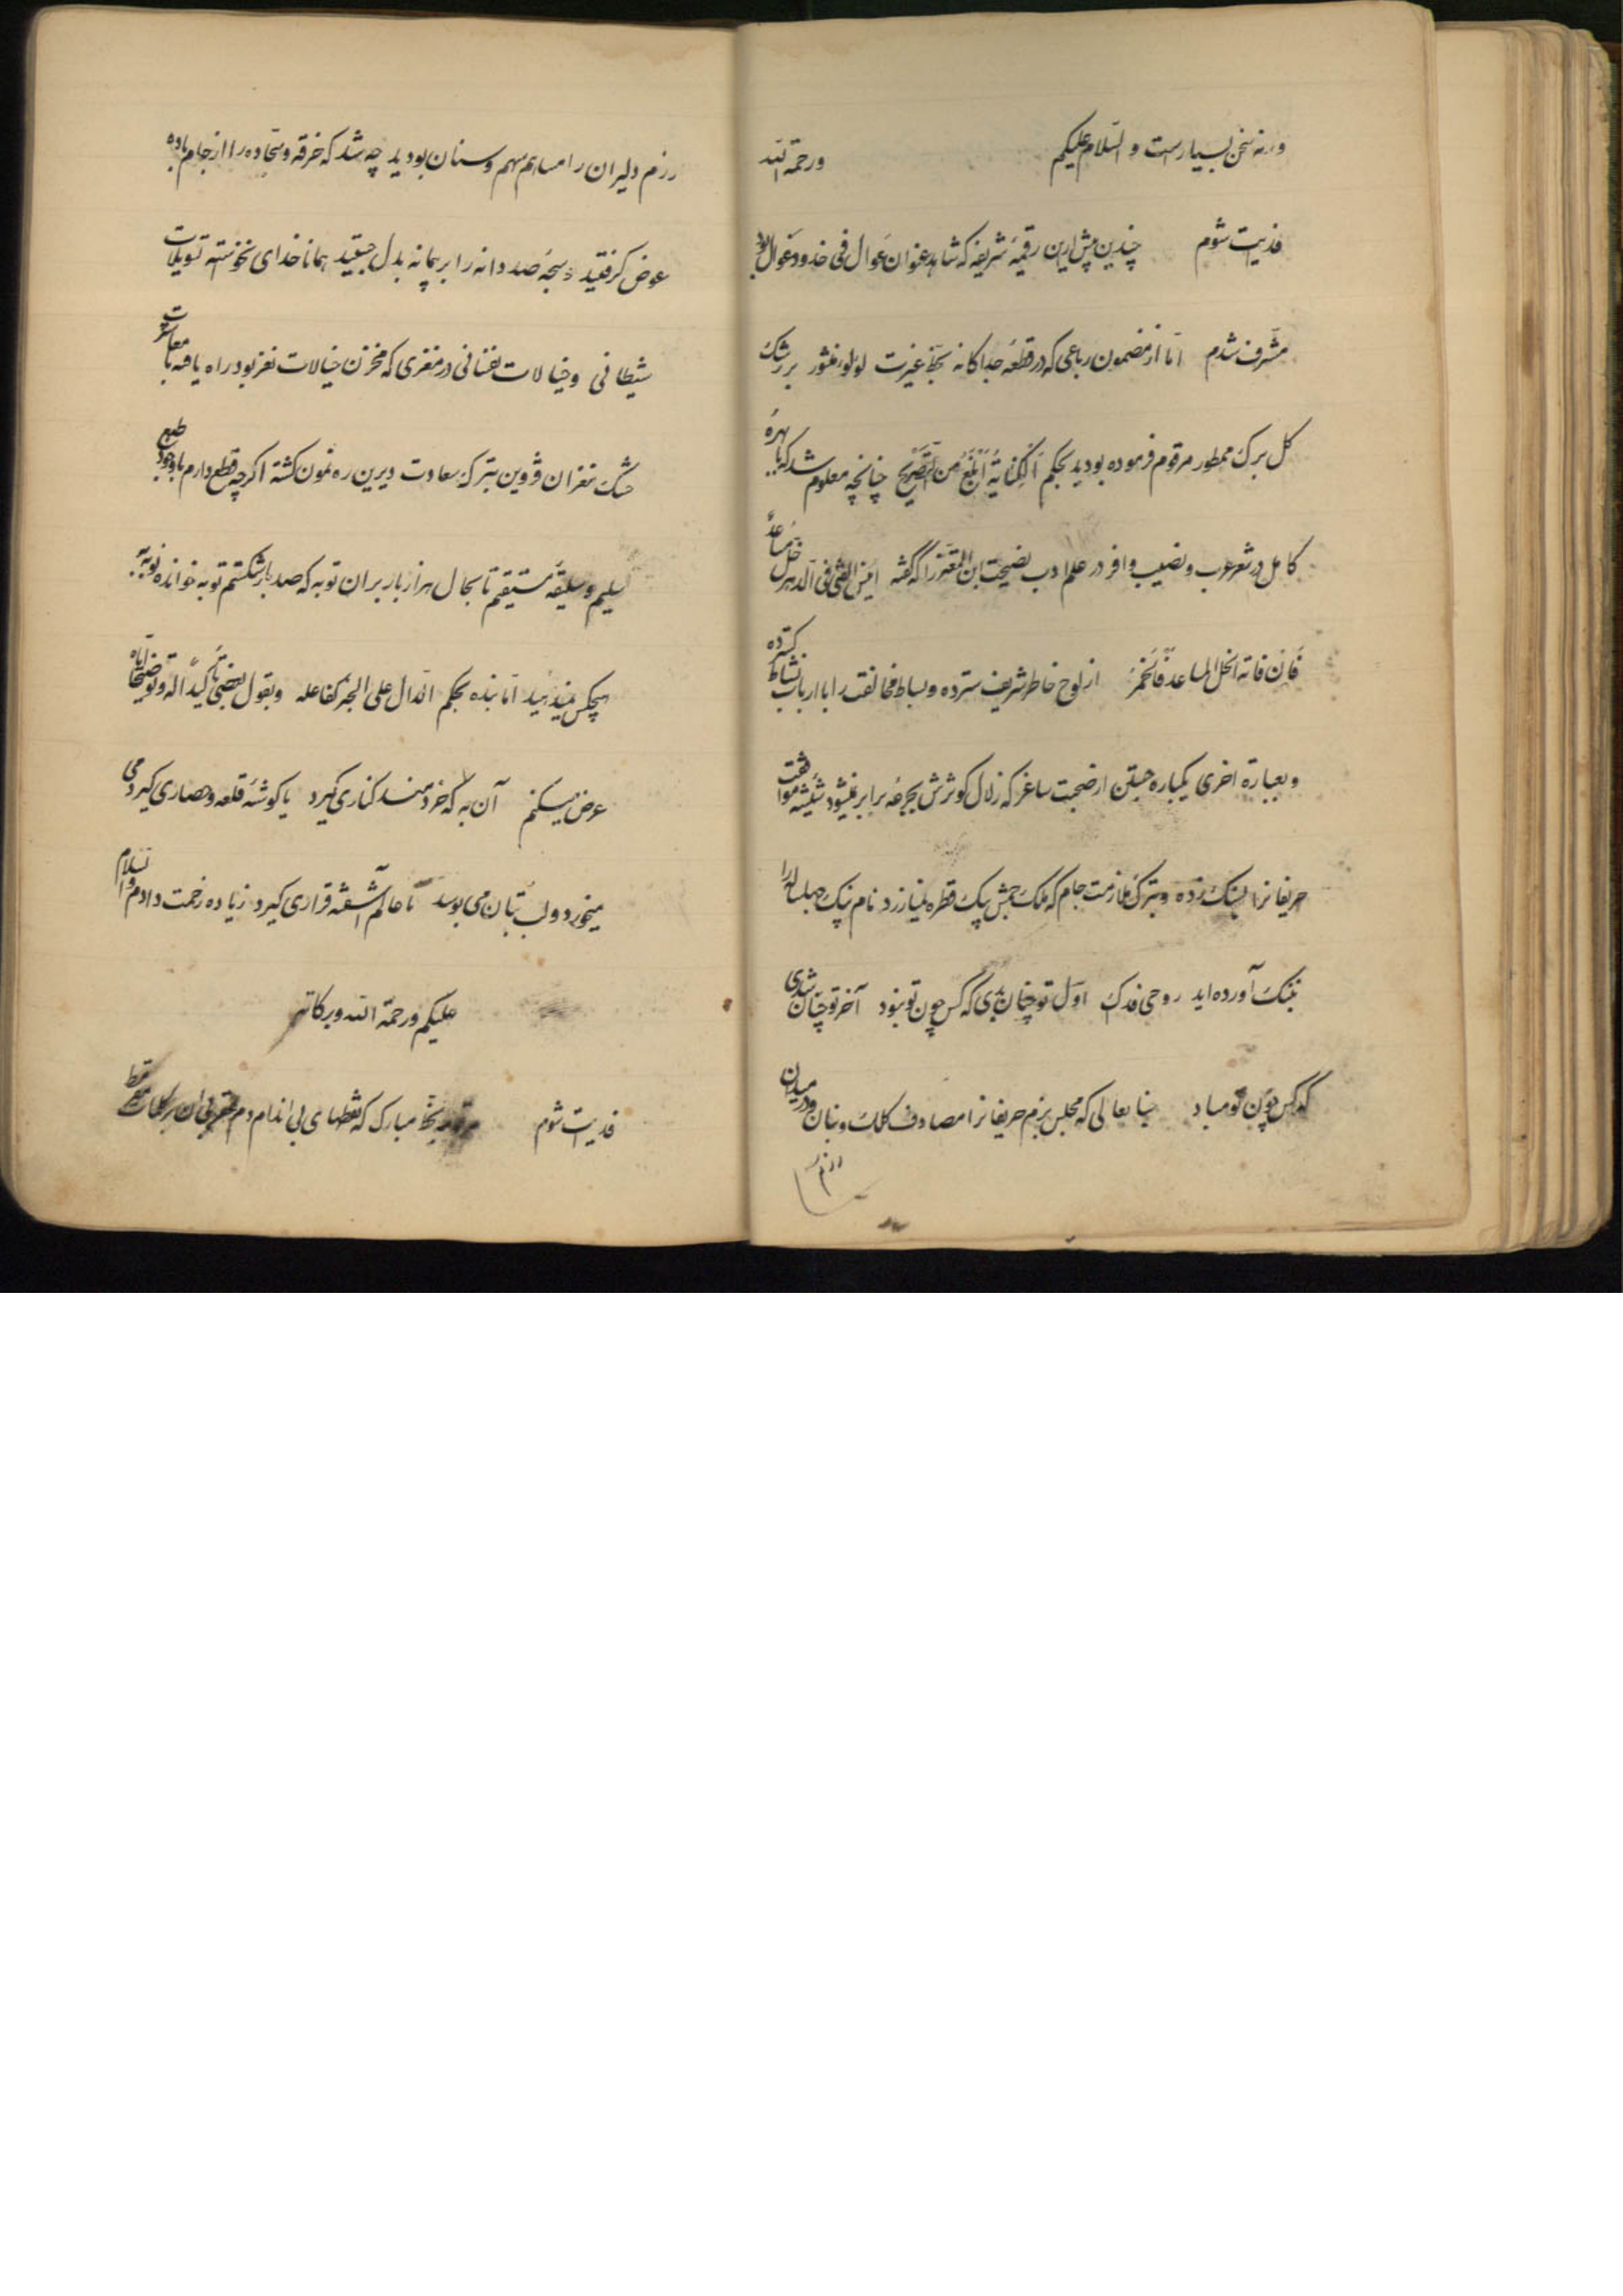 ورنه سخن بسیارست و السّلام علیکم ورحمة الله
فدیت شوم چندین پیش ازین رقیمهٔ شریفه که شاهد عنوان غوال فی خدود غوال بود
مشرّف شدم امّا از مضمون رباعی که در قطعهٔ جداکانه بخطّ غیرت لولوء منثور بر رشک
کل برک ممطور مرقوم فرموده بودید بحکم اَلکِنایةُ اَبلَغُ مِنَ التَّصریح چنانچه معلوم شد که با بهرهٔ
کامل در شعر عرب و نصیب وافر در علم ادب نصیحت ابن المعتز را که گفته الفتی فی الدّهر خلّ مساعد
فَاِن فاته الخلّ المساعد فَالخَمرُ از لوح خاطر شریف سترده و بساط مخالفت را با ارباب نشاط کسترده
و بعبارة اخری یکباره جستن از صحبت ساغر که زلال کوثرش بجرعه برابر نمیشود شیشهٔ موافقت
حریفانرا بسنک زده و بترک ملازمت جام که ملک جمش بیک قطره نیارزد نام نیک چهل ساله را
بننک آورده اید روحی فدک اوّل تو چنان بدی که کس چون تو نبود آخر تو چنان شدی
که کس چون تو مباد جنابعالی که مجلس بزم حریفانرا مصادف کلک و بنان و در میدان
رزم
رزم دلیران را مساهم سهم و سنان بودید چه شد که خرقه و سجّاده را از جام باده
عوض کرفتید و سبحهٔ صد دانه را بر پیمانه بدل جستید همانا خدای نخواسته تسویلات
شیطانی و خیالات نفسانی در مغزی که مخزن خیالات نغز بود راه یافته با معاشرت
خشک مغزان قزوین بترک سعادت دیرین ره نمون کشته اکرچه قطع دارم با وجود طبع
سلیم و سلیقهٔ مستقیم تا بحال هزار بار بر ان توبه که صد بار شکستم توبه خوانده توبه به
هیچکس نمیدهید امّا بنده بحکم الدّال علی الخیر کفاعله و بقول بعضی تاکیداً له و توضیحاً ایّاه
عرض میکنم آن به که خردمند کناری کیرد یا کوشهٔ قلعه و حصاری کیرد می
میخورد و لب بتان می بوسد تا عالم آشفته قراری کیرد زیاده زحمت دادم والسّلام
علیکم ورحمة الله وبرکاته
فدیت شوم بخطّ مبارک که نقطهای بی اندام دم